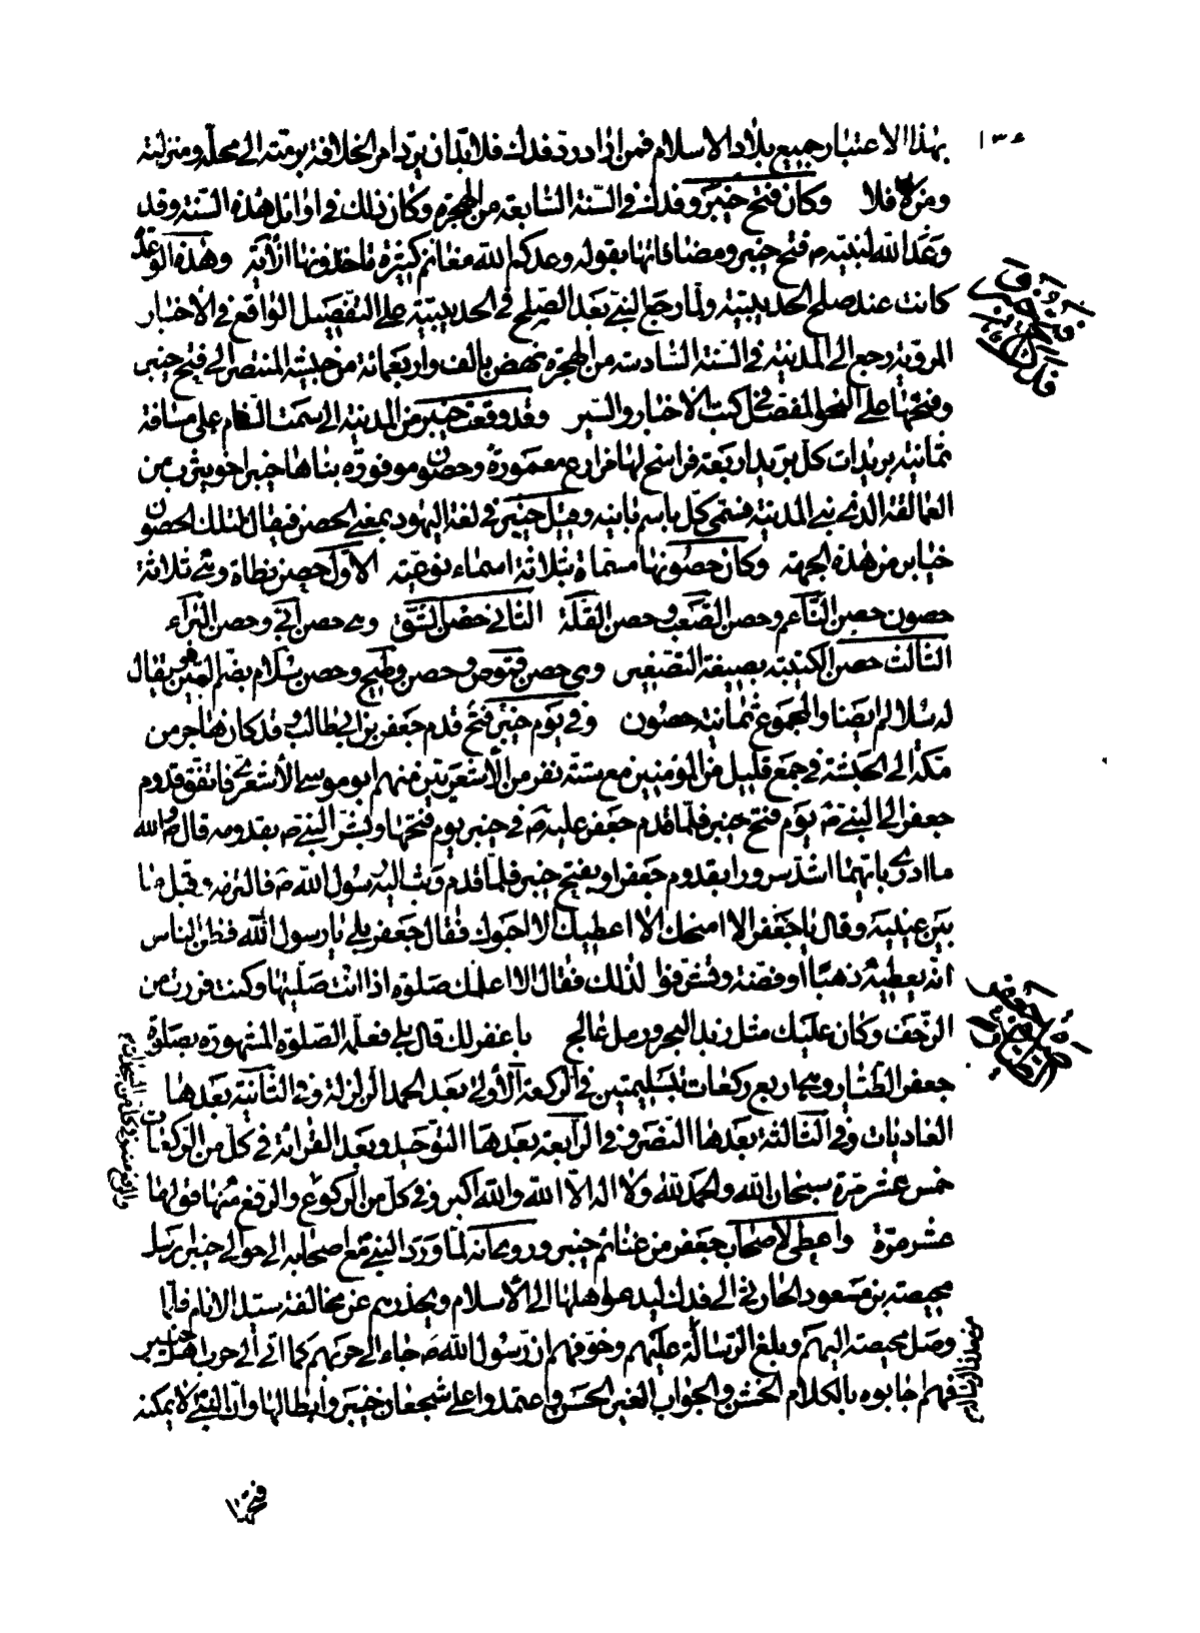 ١٣٤
بهذا الاعتبار جميع بلاد الاسلام فمن اراد ردّ فدك فلابدّ ان يردّ امر الخلافة برمّته الى محلّه ومنزلته
ومركزه فلا وكان فتح خيبر وفدك في السّنة السّابعة من الهجرة وكان ذلك في اوائل هذه السّنة وقد
وعد الله لنبيّه ص فتح خيبر ومضافاتها بقوله وعدكم الله مغانم كثيرة تاخذونها الآية وهذه الوعدة
كانت عند صلح الحديبيّة ولمّا رجع النبيّ بعد الصّلح في الحديبيّة على التفصيل الواقع في الأخبار
المرويّة رجع الى المدينة في السّنة السّادسة من الهجرة نهض بالف واربعمائة من جيشه المنتصر الى فتح خيبر
وفتحها على النحو المفصّل في كتب الاخبار والسّير وقد وقعت خيبر من المدينة الى سمت الشّام على مسافة
ثمانية بريدات كلّ بريد اربعة فراسخ لها مزارع معمورة وحصون موفورة بناها خيبر اخو يثرب من
العمالقة الذي بنى المدينة فسمّي كلّ باسم بانيه وقيل خيبر في لغة اليهود بمعنى الحصن فيقال لتلك الحصون
خيابر من هذه الجهة وكان حصونها مسمّاة بثلاثة اسماء نوعيّة الاوّل حصن نطاة وهي ثلاثة
حصون حصن النّاعم وحصن الصّعب وحصن القلّة الثاني حصن الشّقّ وهي حصن ابيّ وحصن البراء
الثالث حصن الكتيبة بصيغة التصغير وهي حصن قموص وحصن وطيح وحصن سلالم بضمّ السين ويقال
له سلاليم ايضا والمجموع ثمانية حصون وفي يوم خيبر فتح قدم جعفر بن ابي طالب وقد كان هاجر من
مكّة الى الحبشة في جمع قليل من المؤمنين مع ستّة نفر من الأشعريّين منهم ابو موسى الأشعري فاتفق قدوم
جعفر الى النبيّ ص يوم فتح خيبر فلمّا قدم جعفر عليه ص في خيبر يوم فتحها وبشّر النبيّ ص بقدومه قال ص والله
ما ادري بايّهما اشدّ سرورا بقدوم جعفر او بفتح خيبر فلمّا قدم وثب اليه رسول الله ص فالتزمه وقبّل ما
بين عينيه وقال يا جعفر الا امنحك الا اعطيك الا احبوك فقال جعفر بلى يا رسول الله فظنّ الناس
انّه يعطيه ذهبًا او فضّة وتشرّفوا لذلك فقال الا اعلمك صلوة اذا انت صلّيتها وكنت فررت من
الزّحف وكان عليك مثل زبد البحر ورمل عالج يا غفر لك قال بلى فعلّمه الصّلوة المشهورة بصلوة
جعفر الطيّار وهي اربع ركعات بتسليمتين في الركعة الأولى بعد الحمد الزلزلة وفي الثانية بعدها
العاديات وفي الثّالثة بعدها النصر وفي الرّابعة بعدها التوحيد وبعد القرائة في كلّ من الركعات
خمس عشر مرّة سبحان الله والحمد لله ولا اله الا الله والله اكبر وفي كلّ من الركوع والرفع منها قولها
عشر مرّة واعطى لأصحاب جعفر من غنائم خيبر وروي انّه لمّا ورد النبيّ مع اصحابه الى حوالي خيبر ارسل
محيصة بن مسعود الحارثي الى فدك ليدعو اهلها الى الأسلام ويحذرهم عن مخالفة سيّد الانام فلمّا
وصل محيصة اليهم وبلغ الرّسالة عليهم وخوّفهم ان رسول الله ص جاء الى حربهم كما اتى الى حرب اهل خيبر
فهم اجابوه بالكلام الخشن والجواب الغير الحسن واعتمدوا على شجعان خيبر وابطالها وانّ الفتح لا يمكنه